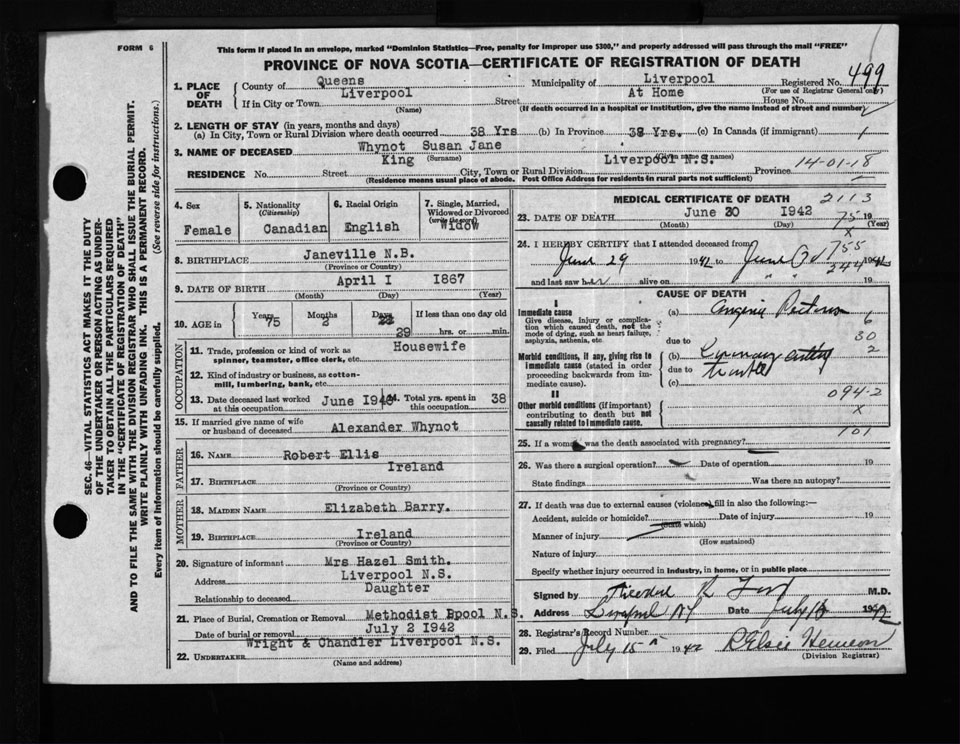 FORM 6
This form if placed in an envelope, marked "Dominion Statistics—Free, penalty for improper use $300," and properly addressed will pass through the mail "FREE"
PROVINCE OF NOVA SCOTIA—CERTIFICATE OF REGISTRATION OF DEATH
1. PLACE OF DEATH
County of Queens Municipality of Liverpool Registered No. 499
(For use of Registrar General only)
If in City or Town Liverpool Street At Home House No.
(Name) (If death occurred in a hospital or institution, give the name instead of street and number)
2. LENGTH OF STAY (in years, months and days)
(a) In City, Town or Rural Division where death occurred 38 Yrs (b) In Province 38 Yrs. (c) In Canada (if immigrant)
3. NAME OF DECEASED Whynot Susan Jane
(Surname) (Given name or names)
RESIDENCE No. King Street City, Town or Rural Division Liverpool N.S. Province 14-01-18
(Residence means usual place of abode. Post Office Address for residents in rural parts not sufficient)
4. Sex Female
5. Nationality (Citizenship) Canadian
6. Racial Origin English
7. Single, Married, Widowed or Divorced (write the word) Widow
8. BIRTHPLACE Janeville N.B.
(Province or Country)
9. DATE OF BIRTH April I 1867
(Month) (Day) (Year)
10. AGE in Years 75 Months 2 Days 29 If less than one day old hrs. or min.
OCCUPATION
11. Trade, profession or kind of work as spinner, teamster, office clerk, etc. Housewife
12. Kind of industry or business, as cotton-mill, lumbering, bank, etc.
13. Date deceased last worked at this occupation June
14. Total yrs. spent in this occupation 38
15. If married give name of wife or husband of deceased Alexander Whynot
FATHER
16. NAME Robert Ellis
17. BIRTHPLACE Ireland
(Province or Country)
MOTHER
18. MAIDEN NAME Elizabeth Barry.
19. BIRTHPLACE Ireland
(Province or Country)
20. Signature of informant Mrs Hazel Smith.
Address Liverpool N.S.
Relationship to deceased Daughter
21. Place of Burial, Cremation or Removal Methodist Bpool N.S.
Date of burial or removal July 2 1942
22. UNDERTAKER Wright & Chandler Liverpool N.S.
(Name and address)
MEDICAL CERTIFICATE OF DEATH 2113
23. DATE OF DEATH June 30 1942 75 19
(Month) (Day) (Year)
x
24. I HEREBY CERTIFY that I attended deceased from 755
June 29 1942 to June 244 1942
and last saw her alive on " " 19
CAUSE OF DEATH
I
Immediate cause
Give disease, injury or complication which caused death, not the mode of dying, such as heart failure, asphyxia, asthenia, etc.
(a) Angina Pectoris
6
30
due to
2
Morbid conditions, if any, giving rise to immediate cause (stated in order proceeding backwards from immediate cause).
(b) Coronary
due to
(c)
II
Other morbid conditions (if important) contributing to death but not causally related to immediate cause.
094-2
x
101
25. If a woman, was the death associated with pregnancy?
26. Was there a surgical operation? Date of operation 19
State findings Was there an autopsy?
27. If death was due to external causes (violence) fill in also the following:—
Accident, suicide or homicide? Date of injury 19
(State which)
Manner of injury
(How sustained)
Nature of injury
Specify whether injury occurred in industry, in home, or in public place
Signed by M.D.
Address Liverpool NS Date July 1942
28. Registrar's Record Number
29. Filed July 15 1942
(Division Registrar)
SEC. 46—VITAL STATISTICS ACT MAKES IT THE DUTY
OF THE UNDERTAKER OR PERSON ACTING AS UNDER-
TAKER TO OBTAIN ALL THE PARTICULARS REQUIRED
IN THE "CERTIFICATE OF REGISTRATION OF DEATH"
AND TO FILE THE SAME WITH THE DIVISION REGISTRAR WHO SHALL ISSUE THE BURIAL PERMIT.
WRITE PLAINLY WITH UNFADING INK. THIS IS A PERMANENT RECORD.
Every item of Information should be carefully supplied. (See reverse side for instructions.)